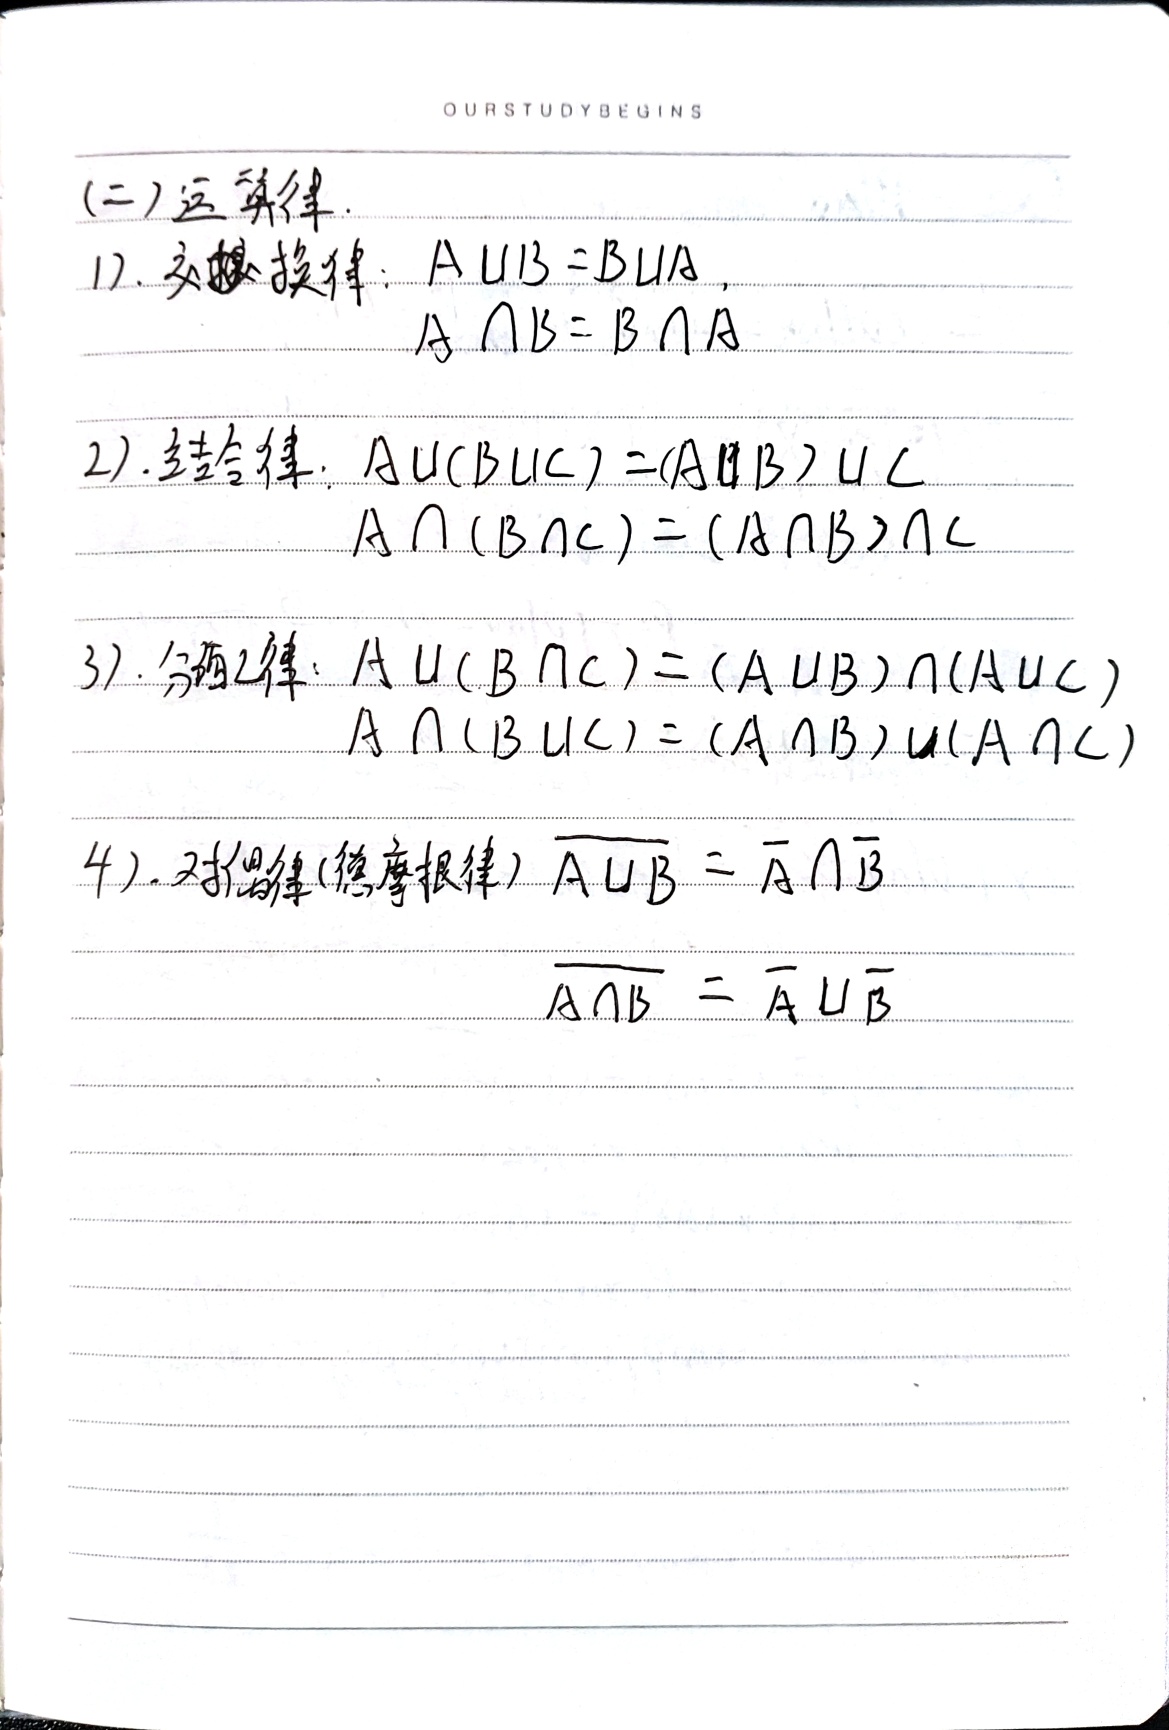 OURSTUDYBEGINS
(二)运算律.
1). 交换律: A∪B=B∪A,
A∩B=B∩A
2). 结合律: A∪(B∪C)=(A∪B)∪C
A∩(B∩C)=(A∩B)∩C
3). 分配律: A∪(B∩C)=(A∪B)∩(A∪C)
A∩(B∪C)=(A∩B)∪(A∩C)
4). 对偶律(德摩根律) A̅∪̅B̅ = A̅∩B̅
A̅∩̅B̅ = A̅∪B̅